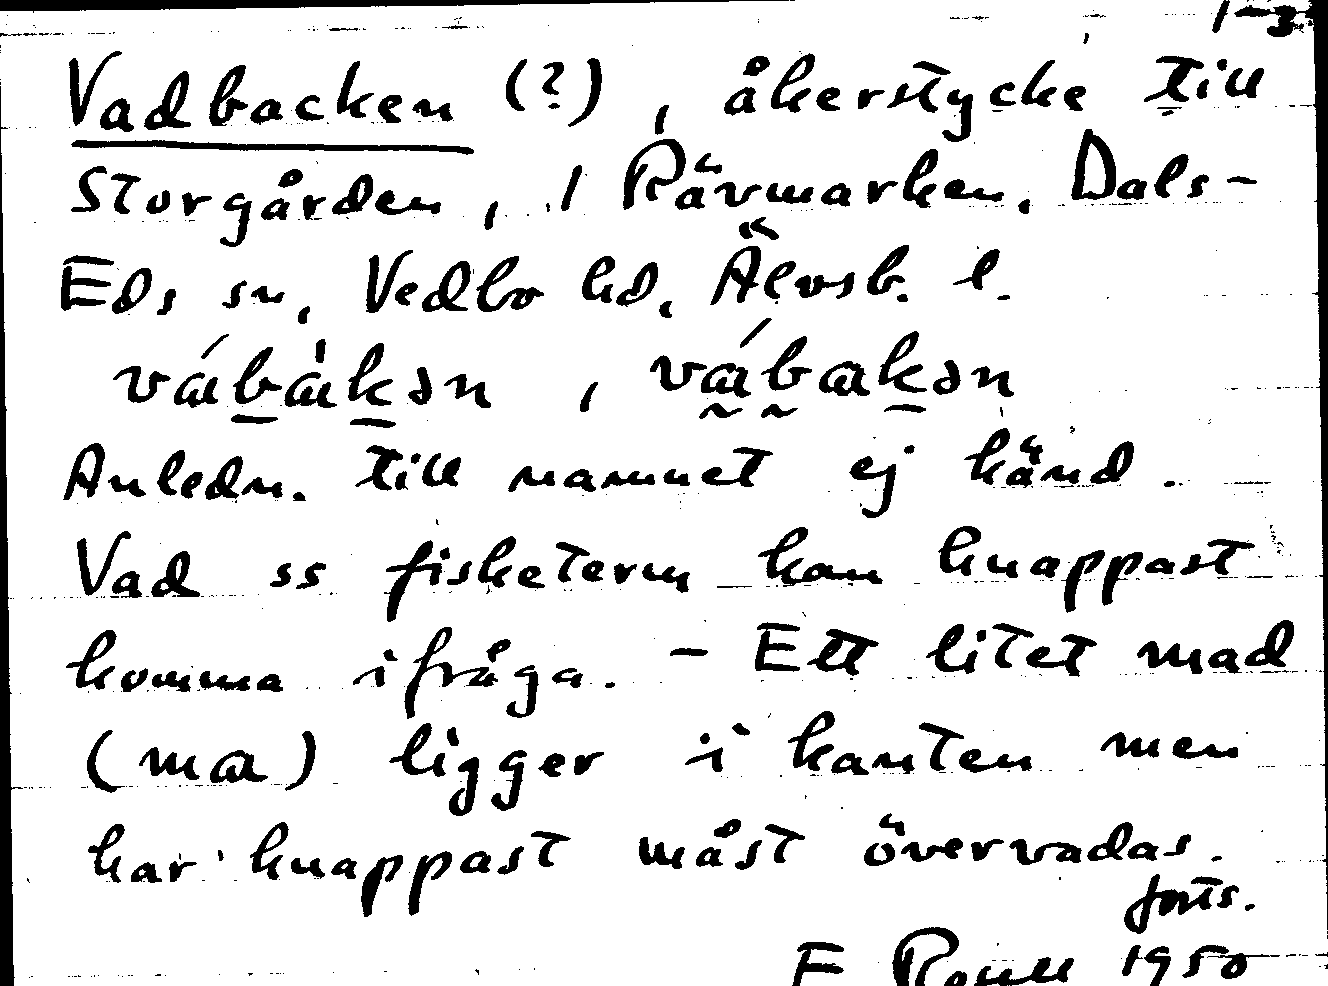 1-3
Vadbacken (?), åkerstycke till
Storgården, 1 Rävmarken, Dals-
Eds sn, Vedbo hd, Älvsb. l.
vábàkən , vábakən
Anledn. till namnet ej känd.
Vad ss fisketerm kan knappast
komma ifråga. - Ett litet mad
(ma) ligger i kanten men
har knappast måst övervadas.
forts.
F 1950